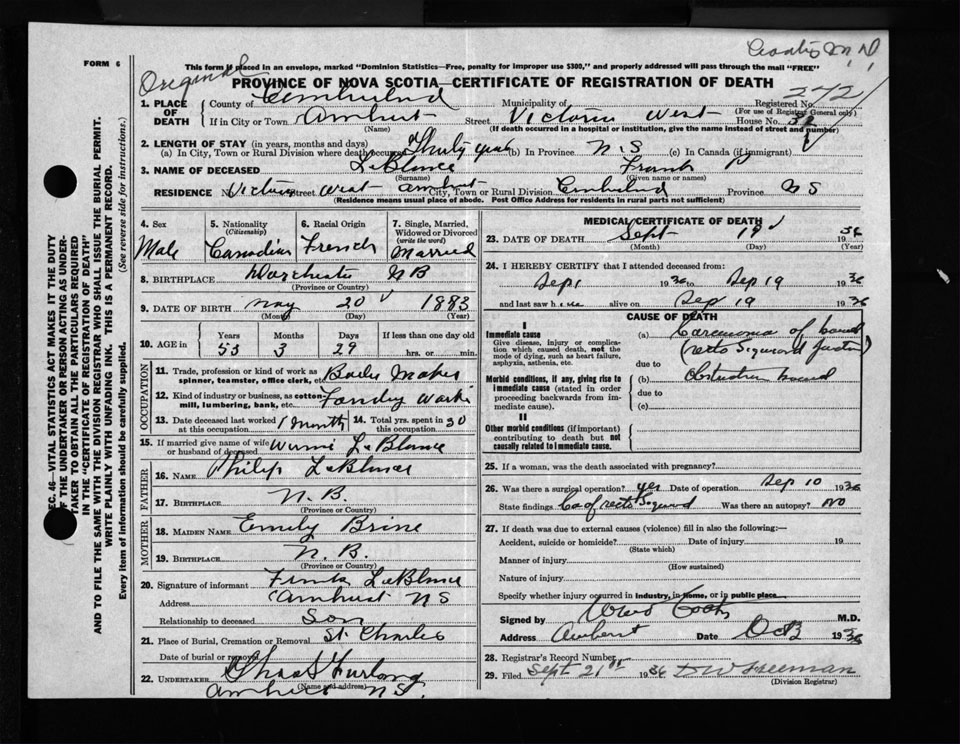 FORM 6
Original
This form if placed in an envelope, marked "Dominion Statistics—Free, penalty for improper use $300," and properly addressed will pass through the mail "FREE"
PROVINCE OF NOVA SCOTIA—CERTIFICATE OF REGISTRATION OF DEATH
1. PLACE OF DEATH
County of Municipality of Registered No. 242
If in City or Town Amherst Street Victoria West House No. 32 (For use of Registrar General only)
(Name) (If death occurred in a hospital or institution, give the name instead of street and number)
2. LENGTH OF STAY (in years, months and days)
(a) In City, Town or Rural Division where death occurred Thirty years (b) In Province N.S (c) In Canada (if immigrant)
3. NAME OF DECEASED LeBlanc Frank P
(Surname) (Given name or names)
RESIDENCE No. Victoria Street West Amherst City, Town or Rural Division Cumberland Province N S
(Residence means usual place of abode. Post Office Address for residents in rural parts not sufficient)
SEC. 46—VITAL STATISTICS ACT MAKES IT THE DUTY
OF THE UNDERTAKER OR PERSON ACTING AS UNDER-
TAKER TO OBTAIN ALL THE PARTICULARS REQUIRED
IN THE "CERTIFICATE OF REGISTRATION OF DEATH"
AND TO FILE THE SAME WITH THE DIVISION REGISTRAR WHO SHALL ISSUE THE BURIAL PERMIT.
WRITE PLAINLY WITH UNFADING INK. THIS IS A PERMANENT RECORD.
Every item of information should be carefully supplied. (See reverse side for instructions.)
4. Sex
Male
5. Nationality
(Citizenship)
Canadian
6. Racial Origin
French
7. Single, Married,
Widowed or Divorced
(write the word)
Married
8. BIRTHPLACE Dorchester N B
(Province or Country)
9. DATE OF BIRTH May 20 1883
(Month) (Day) (Year)
10. AGE in
Years Months Days If less than one day old
53 3 29 hrs. or min.
OCCUPATION
11. Trade, profession or kind of work as
spinner, teamster, office clerk, etc. Boiler Maker
12. Kind of industry or business, as cotton-
mill, lumbering, bank, etc.
13. Date deceased last worked 1 month 14. Total yrs. spent in 30
at this occupation this occupation
15. If married give name of wife
or husband of deceased LeBlanc
FATHER
16. NAME Philip LeBlanc
17. BIRTHPLACE N.B.
(Province or Country)
MOTHER
18. MAIDEN NAME Emily Brine
19. BIRTHPLACE N.B.
(Province or Country)
20. Signature of informant Frank LeBlanc
Address Amherst N S
Relationship to deceased Son
21. Place of Burial, Cremation or Removal St Charles
Date of burial or removal
22. UNDERTAKER Chas S Furlong
(Name and address)
Amherst N.S.
MEDICAL CERTIFICATE OF DEATH
23. DATE OF DEATH Sept 19 1936
(Month) (Day) (Year)
24. I HEREBY CERTIFY that I attended deceased from:
Sep 1 1936 to Sep 19 1936
and last saw him alive on Sep 19 1936
CAUSE OF DEATH
I
Immediate cause
Give disease, injury or complica-
tion which caused death, not the
mode of dying, such as heart failure,
asphyxia, asthenia, etc.
(a) Carcinoma of bowel
due to
Morbid conditions, if any, giving rise to
immediate cause (stated in order
proceeding backwards from im-
mediate cause).
(b) obstruction bowel
due to
(c)
II
Other morbid conditions (if important)
contributing to death but not
causally related to immediate cause.
25. If a woman, was the death associated with pregnancy?
26. Was there a surgical operation? yes Date of operation Sep 10 1936
State findings Ca of recto Sigmoid Was there an autopsy? no
27. If death was due to external causes (violence) fill in also the following:—
Accident, suicide or homicide? Date of injury 19
(State which)
Manner of injury
(How sustained)
Nature of injury
Specify whether injury occurred in industry, in home, or in public place
Signed by M.D.
Address Amherst Date Oct 3 1936
28. Registrar's Record Number
29. Filed Sept 21st 1936 D W Freeman
(Division Registrar)